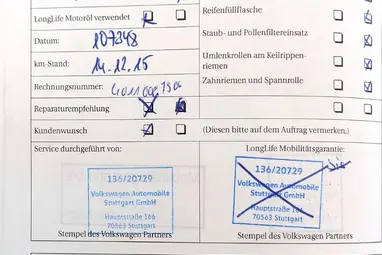 LongLife Motoröl verwendet
Datum: 107348
km-Stand: 14.12.15
Rechnungsnummer:
Reparaturempfehlung
Kundenwunsch
Service durchgeführt von:
136/20729
Volkswagen Automobile
Stuttgart GmbH
Hauptstraße 166
70563 Stuttgart
Stempel des Volkswagen Partners
Reifenfüllflasche
Staub- und Pollenfiltereinsatz
Umlenkrollen am Keilrippen-
riemen
Zahnriemen und Spannrolle
(Diesen bitte auf dem Auftrag vermerken.)
LongLife Mobilitätsgarantie:
136/20729
Volkswagen Automobile
Stuttgart GmbH
Hauptstraße 166
70563 Stuttgart
Stempel des Volkswagen Partners